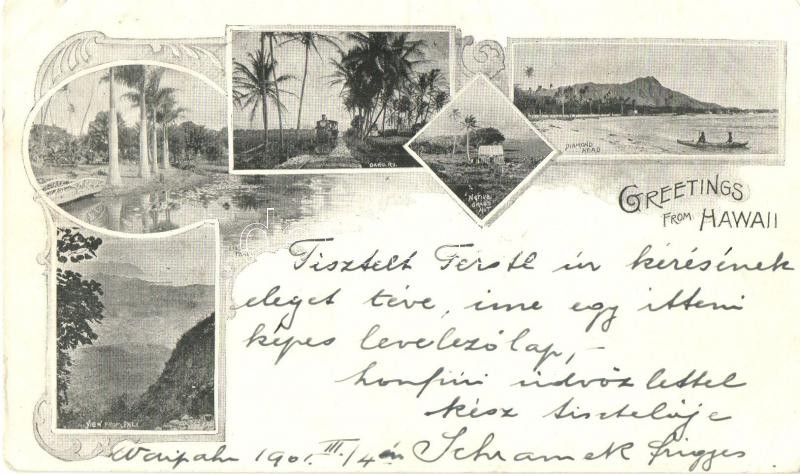 OAHU RY.
DIAMOND
HEAD
Native
Grass
Hut
GREETINGS
FROM HAWAII
VIEW FROM PALI
Tisztelt Ferstl úr kérésének
eleget téve, ime egy itteni
képes levelezőlap,-
honfiúi üdvözlettel
kész tisztelője
Waipahu 1901. III./4 én Schramek